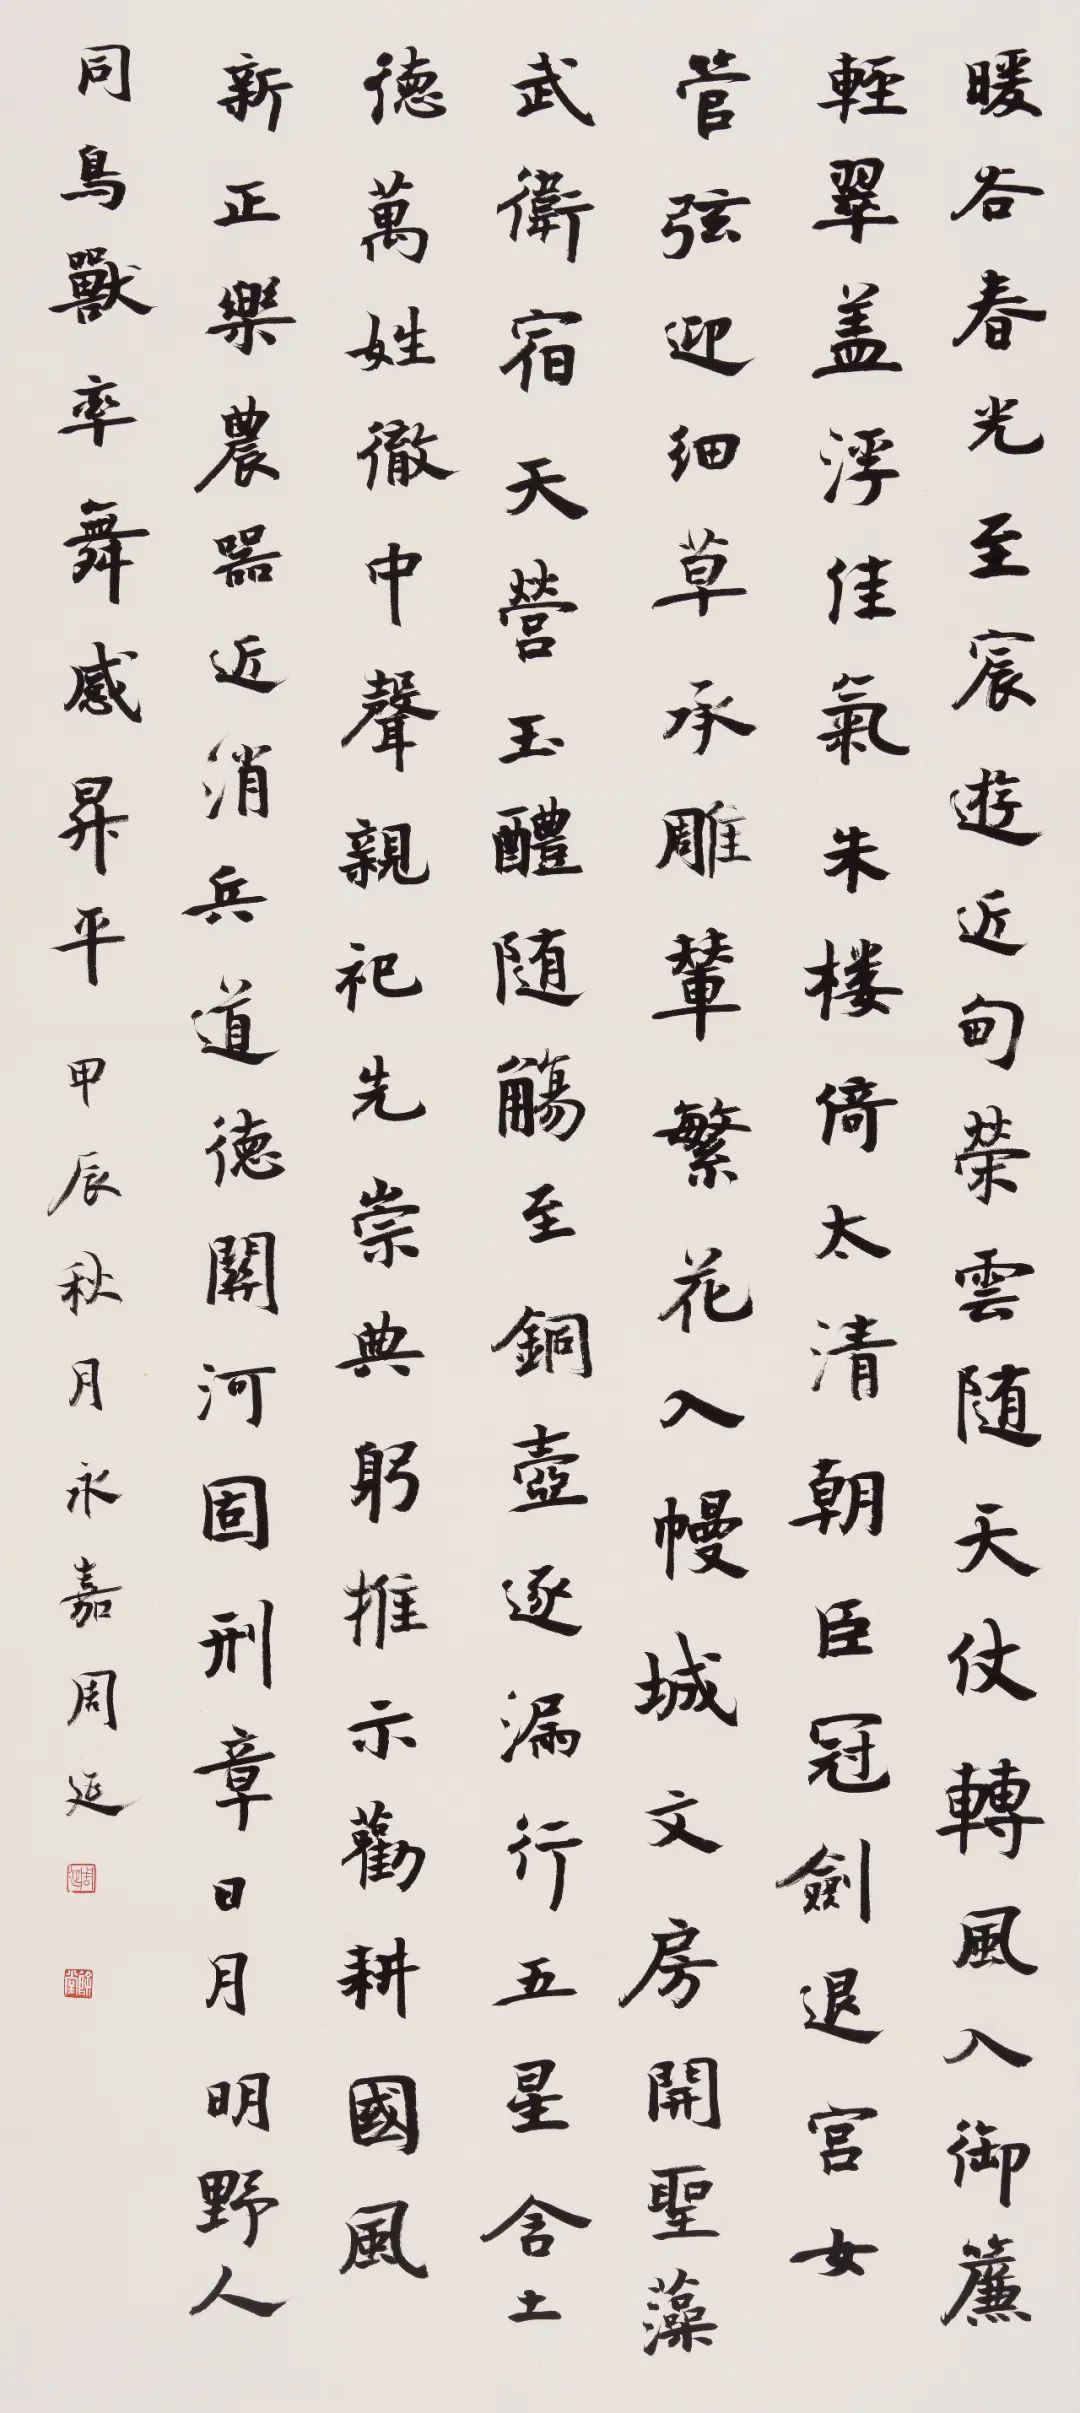 暖谷春光至宸遊近甸荣雲随天仗轉風入御簾
輕翠盖浮佳氣朱楼倚太清朝臣冠劍退宮女
管弦迎细草承雕輦繁花入幔城文房開聖藻
武衛宿天營玉醴随觴至銅壺逐漏行五星含土
德萬姓徹中聲親祀先崇典躬推示勸耕國風
新正樂農器近消兵道德關河固刑章日月明野人
同鳥獸率舞感昇平
甲辰秋月永嘉周延